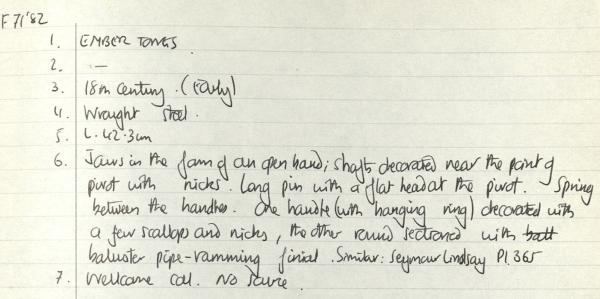 F71'82
1. EMBER TONGS
2. —
3. 18th Century. (Early)
4. Wrought steel.
5. L. 42.3cm
6. Jaws in the form of an open hand; shafts decorated near the point of
pivot with nicks. Long pin with a flat head at the pivot. Spring
between the handles. One handle (with hanging ring) decorated with
a few scallops and nicks, the other round sectioned with
baluster pipe-ramming finial. Similar: Seymour Lindsay Pl. 365
7. Wellcome col. No